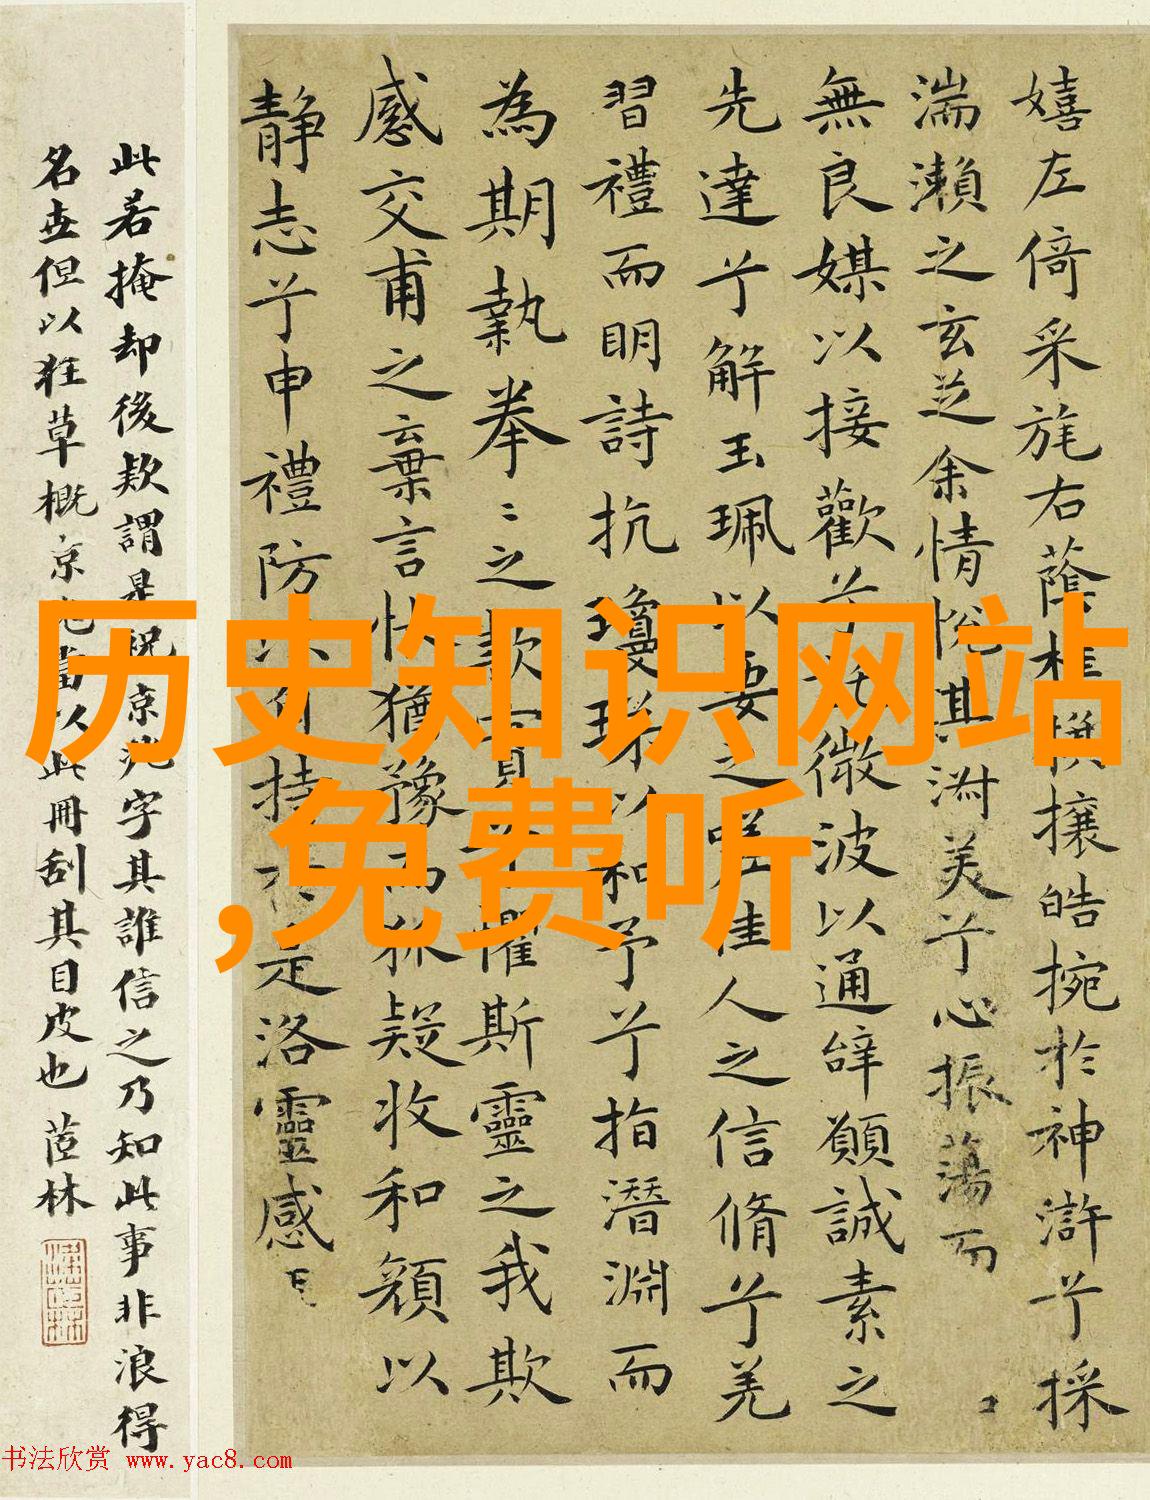 嬉左倚采旄右蔭桂旗攘皓捥於神滸兮採
湍瀨之玄芝余情悅其淑美兮心振蕩而
無良媒以接歡兮託微波以通辝願誠素之
先達兮解玉珮以要之嗟佳人之信脩兮羌
習禮而明詩抗瓊珶以和予兮兮指潛淵而
為期執拳〻之款實兮懼斯靈之我欺
感交甫之棄言悵猶豫而狐疑收和顏以
靜志兮申禮防以自持於是洛靈感
此若掩却後款謂是祝京兆字其誰信之乃知此事非浪得
名世但以狂草概京兆當以此冊刮其目皮也 茝林
历史知识网站
,免费听
书法欣赏 www.yac8.com